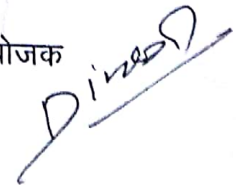 ोजक
Dinesh